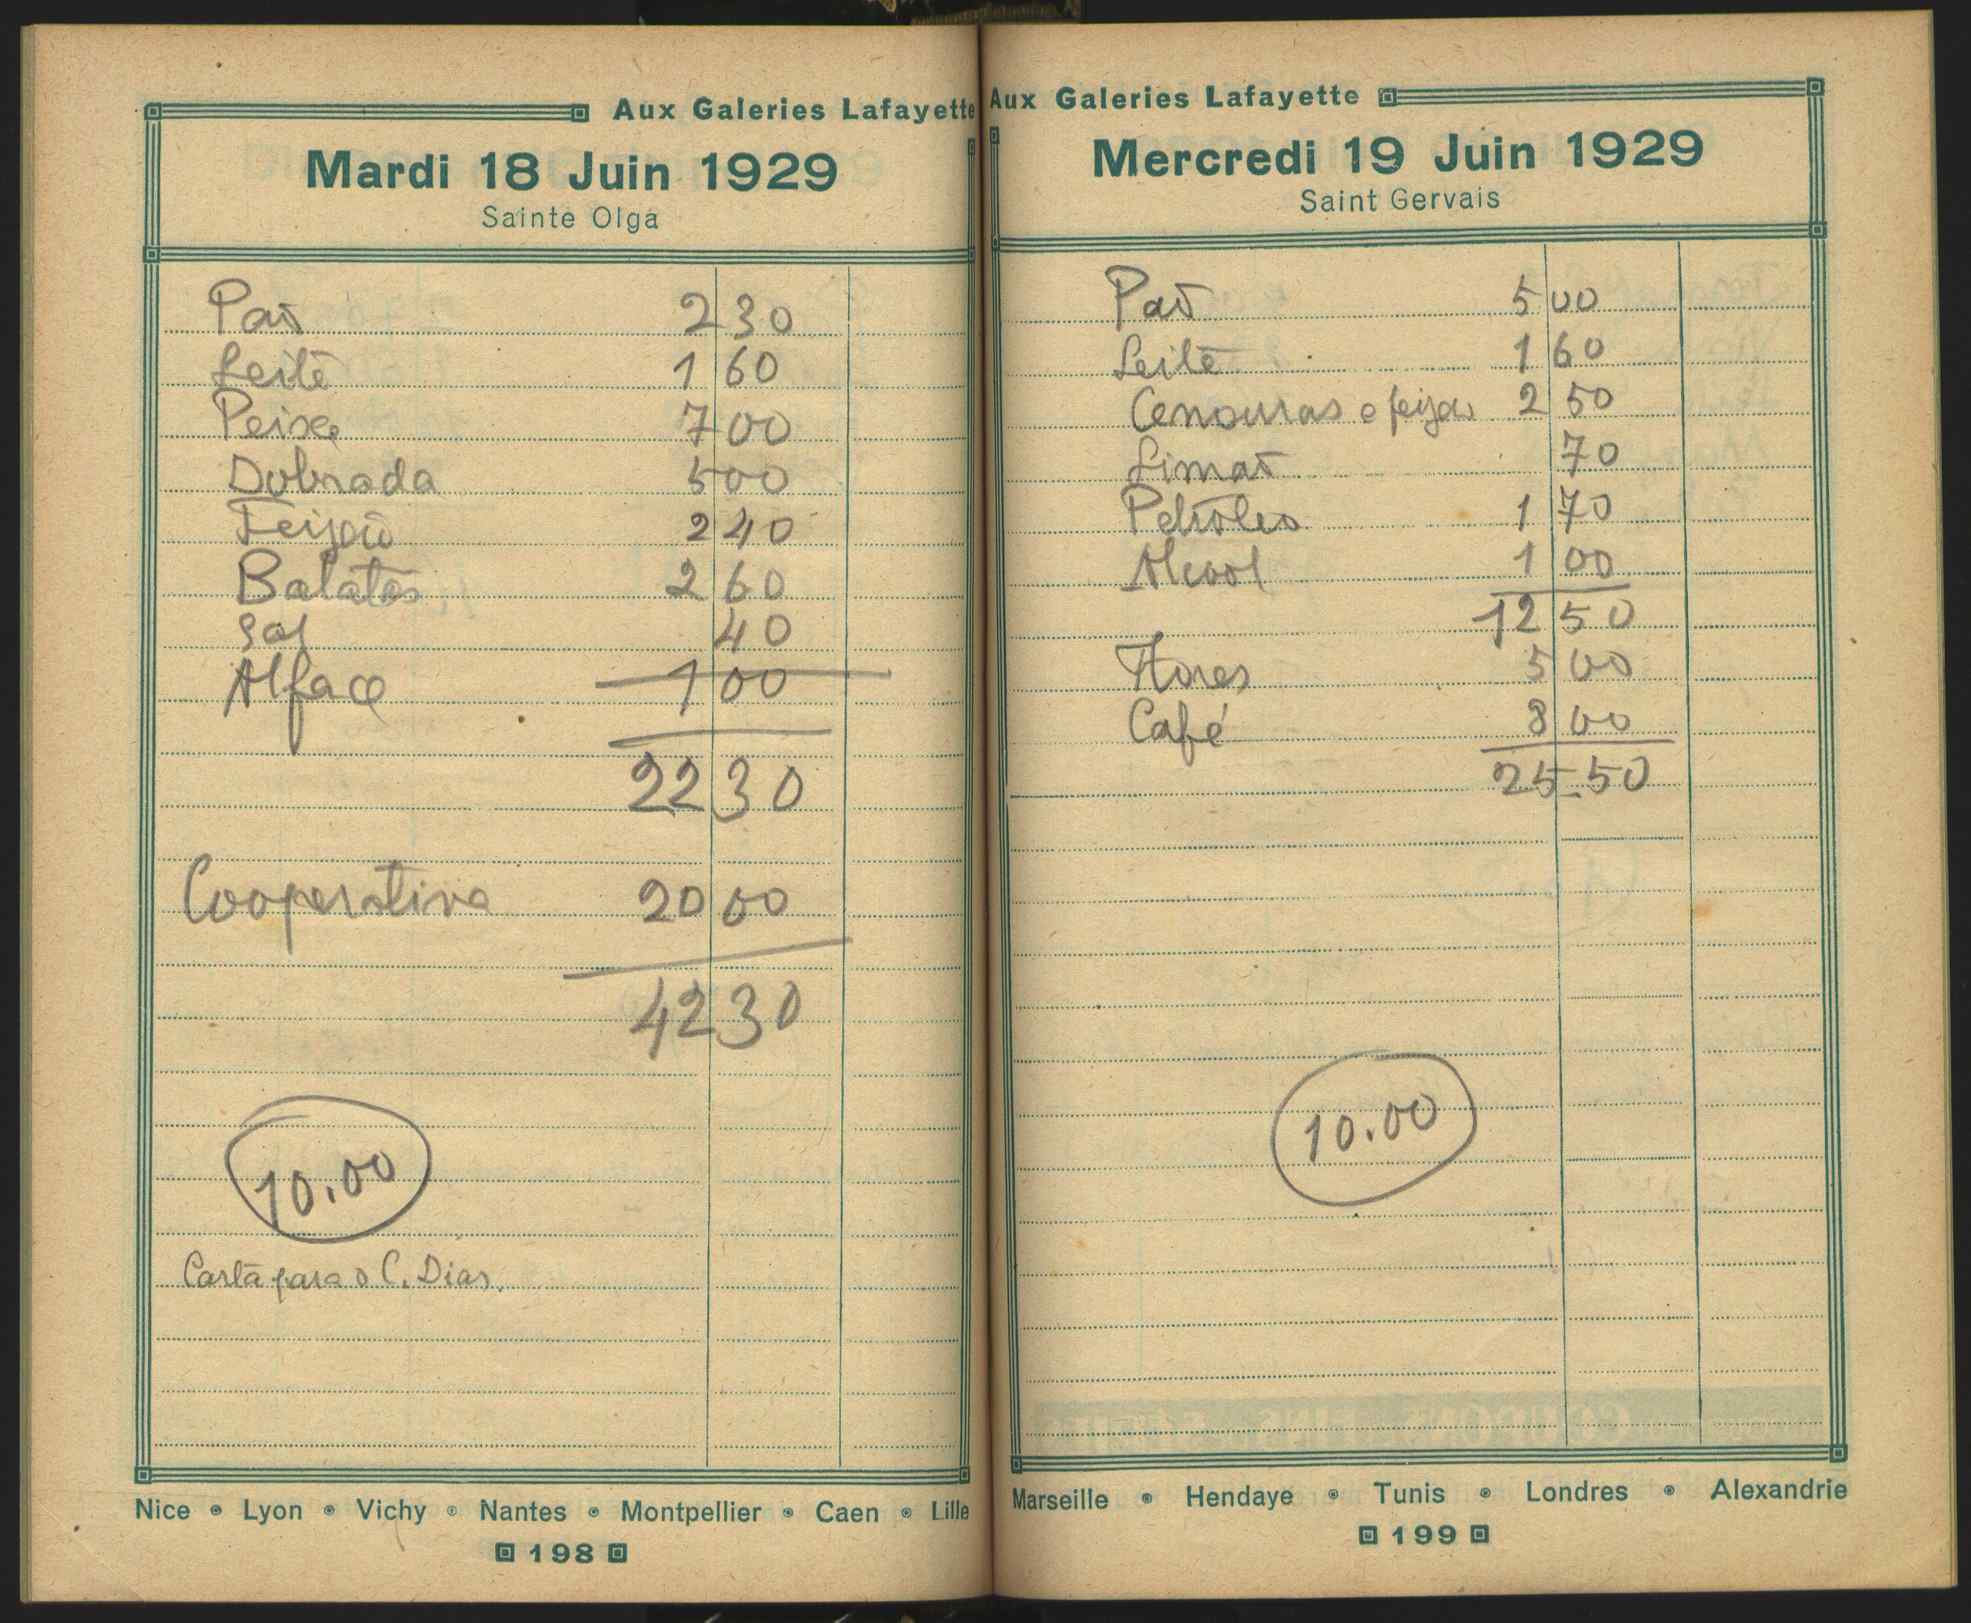 Aux Galeries Lafayette
Mardi 18 Juin 1929
Sainte Olga
Pão 2 30
Leite 1 60
Peixe 7 00
Dobrada 5 00
Feijão 2 40
Batatas 2 60
Sal 40
Alface 1 00
22 30
Cooperativa 20 00
42 30
10.00
Carta para o C. Dias.
Nice Lyon Vichy Nantes Montpellier Caen Lille
198
Aux Galeries Lafayette
Mercredi 19 Juin 1929
Saint Gervais
Pão 5 00
Leite 1 60
Cenouras e feijão 2 50
Limão 70
Petroleo 1 70
Alcool 1 00
12 50
Flores 5 00
Café 8 00
25.50
10.00
Marseille Hendaye Tunis Londres Alexandrie
199